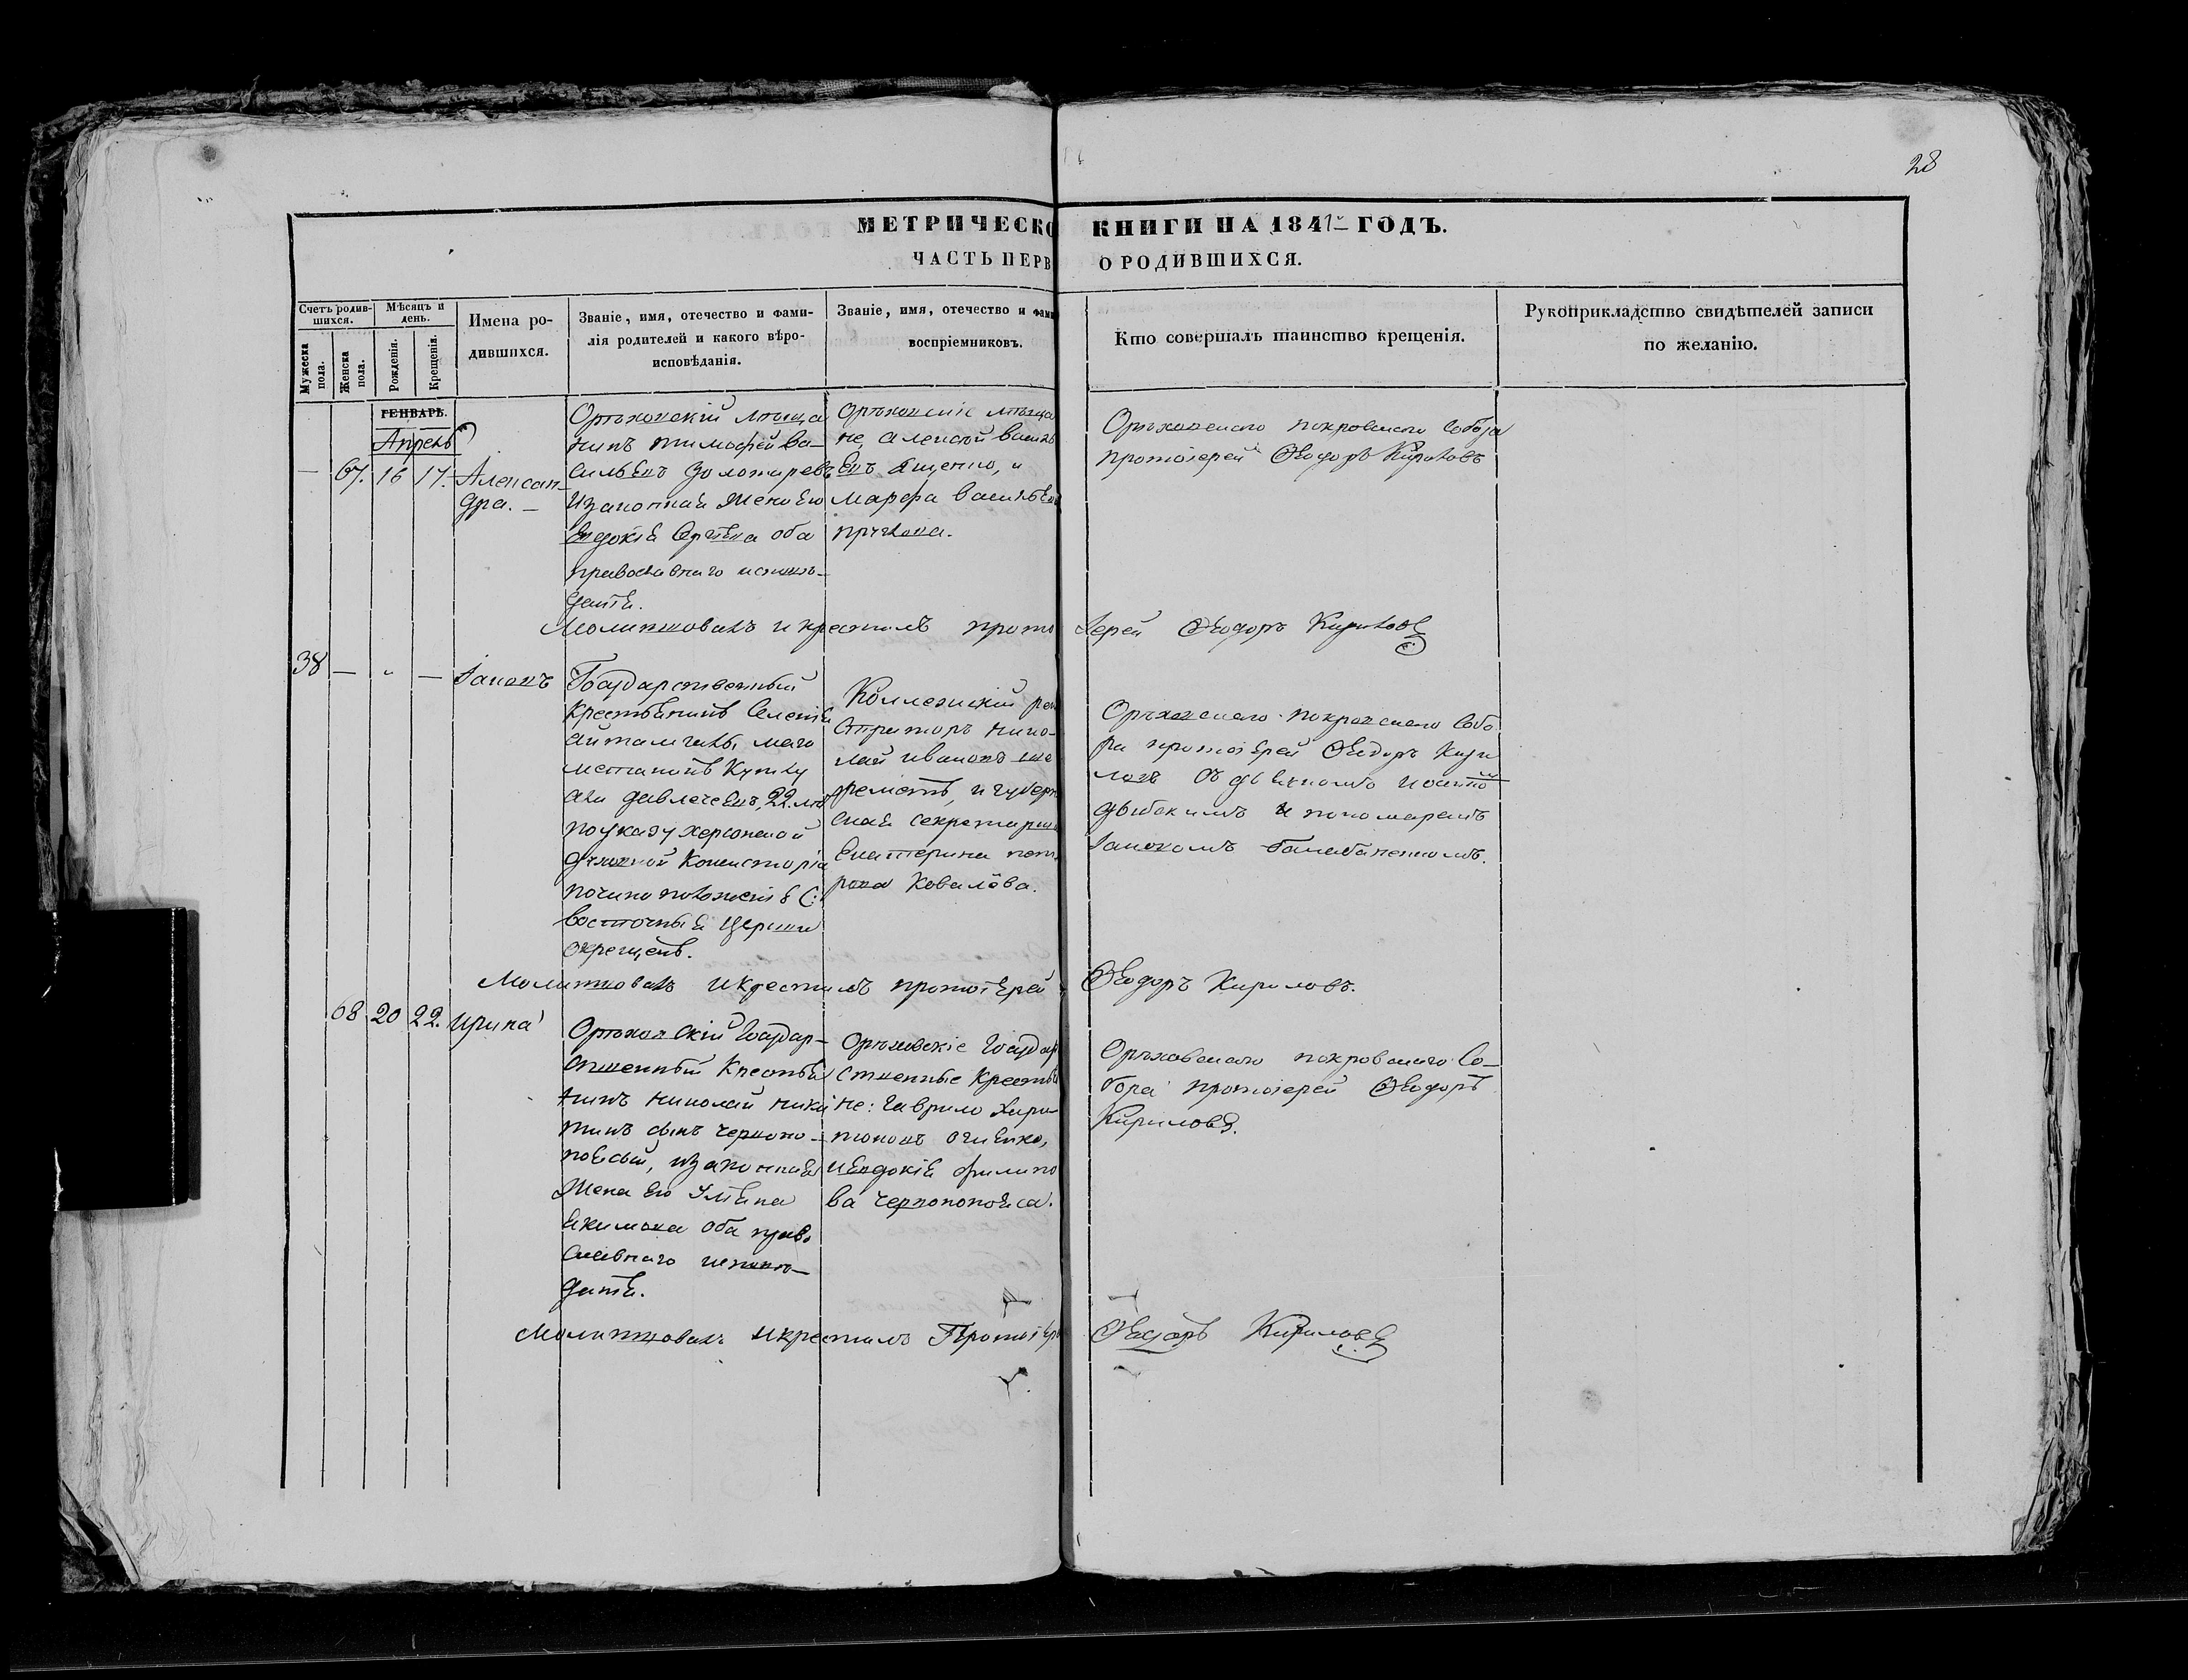 28
МЕТРИЧЕСКО КНИГИ НА 1847 ГОДЪ.
ЧАСТЬ ПЕРВ О РОДИВШИХСЯ.
Счетъ родив-
шихся.
Мужеска пола.
Женска пола.
Мѣсяцъ и
день.
Рожденія.
Крещенія.
Имена ро-
дившихся.
Званіе, имя, отечество и фами-
лія родителей и какого вѣро-
исповѣданія.
Званіе, имя, отечество и фами
воспріемниковъ.
Кто совершалъ таинство крещенія.
Рукоприкладство свидѣтелей записи
по желанію.
ГЕНВАРЬ.
Апрель
— 67. 16 17. Алексан-
дра. —
Орѣховскій мѣща
нинъ Тимофей Ва-
сильевъ Золотаревъ
Изаконная Жена Его
Евдокія оба
православнаго исповѣ-
данія.
Орѣховскіе мѣща
не, Алексѣй Василь
евъ Ященко, и
Марфа Васильев
Орѣховскаго покровскаго Собора
протоіерей Ѳеодоръ Кириловъ
Молитвовалъ и крестилъ прото іерей Ѳеодоръ Кириловъ
38 — „ — Іаковъ
Государственный
Крестьянинъ Селенія
22. лѣт
по указу херсонской
духовной Консисторіи
по чиноположенію С:
восточныя Церкви
окрещенъ.
Коллежскій рег
стриторъ Нико-
лай Ивановъ
и губерн
ская секретарша
Екатерина пет
рова Ковалёва.
Орѣховскаго покровскаго Собо
ра протоіерей Ѳеодоръ Кири
ловъ съ діякономъ
и пономаремъ
Іаковомъ Балабаненкомъ.
Молитвовалъ и крестилъ протоіерей Ѳеодоръ Кириловъ.
68 20 22. Ирина
Орѣховскій Государ-
ственный Крестья
нинъ Николай Ники
тинъ сынъ Черноно-
изаконная
Жена Его Уліяна
Екимова оба право
славнаго исповѣ-
данія.
Орѣховскіе Государ
ственные Крестья
не: Гаврило Хари-
тоновъ Огиенко,
и Евдокія Филипо
ва
Орѣховскаго покровскаго Со-
бора протоіерей Ѳеодоръ
Кириловъ.
Молитвовалъ и крестилъ Протоіер Ѳеодоръ Кириловъ